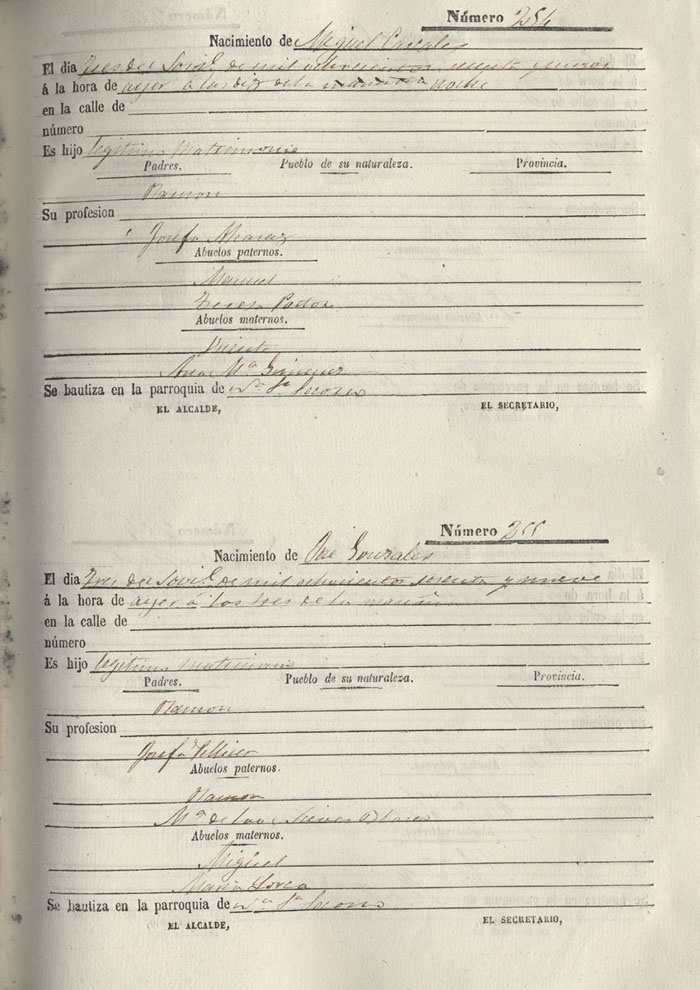 Número 254
Nacimiento de Miguel
El dia Tres de de mil ochocientos sesenta y nueve
á la hora de ayer á las diez de la noche
en la calle de
número
Es hijo legitimo Matrimonio
Padres. Pueblo de su naturaleza. Provincia.
Ramon
Su profesion
Josefa Alcaraz
Abuelos paternos.
Manuel
Abuelos maternos.
Vicente
Ana Mª Gimenez
Se bautiza en la parroquia de
EL ALCALDE, EL SECRETARIO,
Número 255
Nacimiento de José Gonzalez
El dia Tres de de mil ochocientos sesenta y nueve
á la hora de ayer á las tres de la mañana
en la calle de
número
Es hijo legitimo Matrimonio
Padres. Pueblo de su naturaleza. Provincia.
Ramon
Su profesion
Josefa Pellicer
Abuelos paternos.
Ramon
Mª de las Nieves Blasco
Abuelos maternos.
Miguel
Maria Lorca
Se bautiza en la parroquia de
EL ALCALDE, EL SECRETARIO,